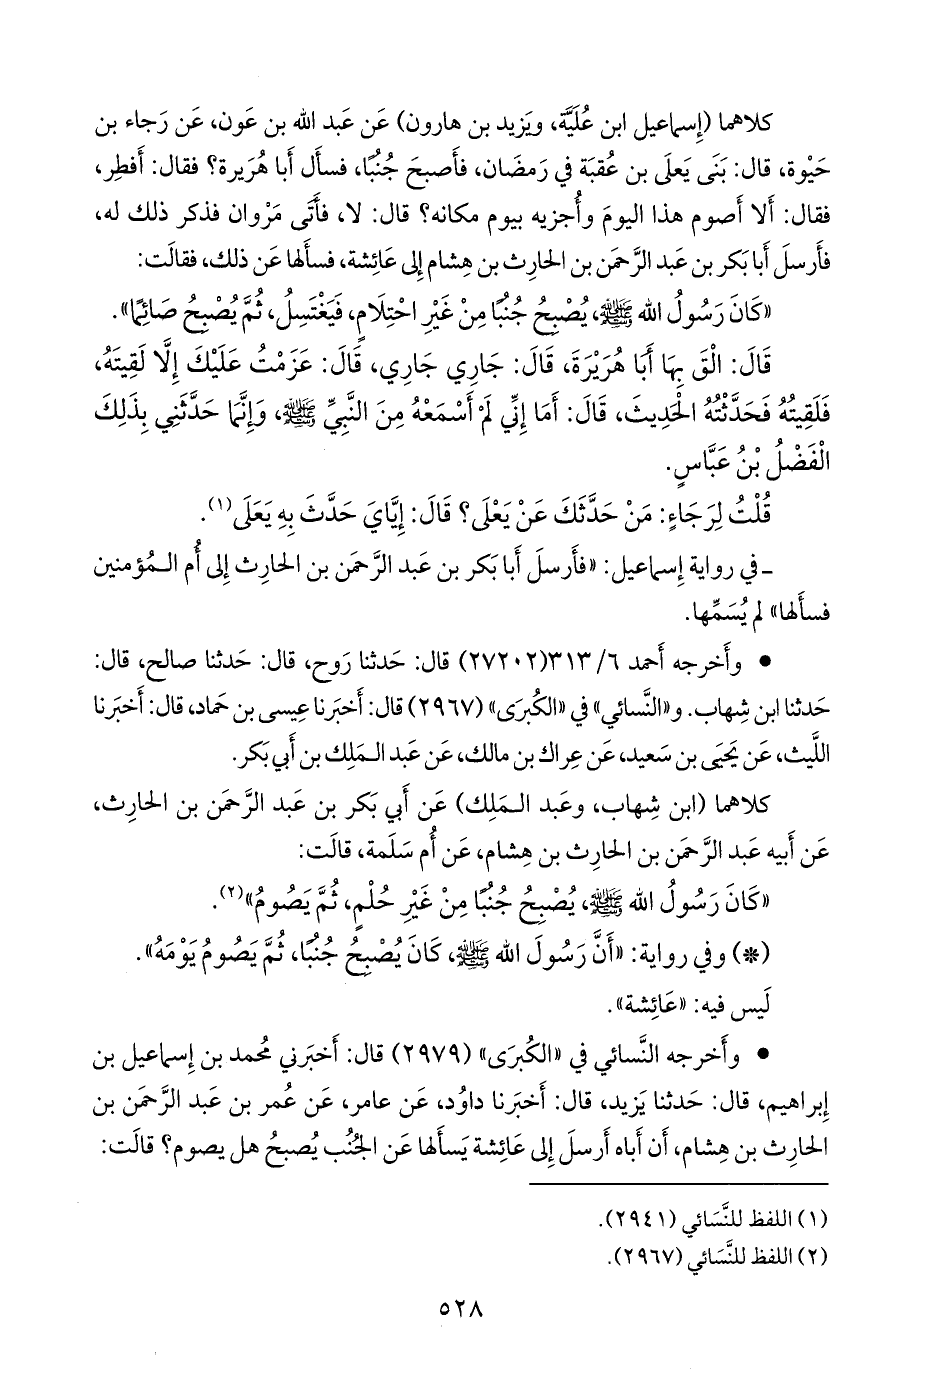 كلاهما (إسماعيل ابن عُلَيَّة، ويَزيد بن هارون) عَن عَبد الله بن عَون، عَن رَجاء بن
حَيْوة، قال: بَنَى يَعلَى بن عُقبَة في رَمضان، فأَصبحَ جُنُبًا، فسأَل أَبا هُرَيرة؟ فقال: أَفطِر،
فقال: أَلا أَصوم هذا اليومَ وأُجزيه بيوم مكانه؟ قال: لا، فأَتى مَرْوان فذكر ذلك له،
فأَرسلَ أَبا بَكر بن عَبد الرَّحمَن بن الحارِث بن هِشام إِلى عَائِشة، فسأَلها عَن ذلك، فقالَت:
«كَانَ رَسُولُ الله ﷺ، يُصْبِحُ جُنُبًا مِنْ غَيْرِ احْتِلَامٍ، فَيَغْتَسِلُ، ثُمَّ يُصْبِحُ صَائِمًا».
قَالَ: الْقَ بِهَا أَبَا هُرَيْرَةَ، قَالَ: جَارِي جَارِي، قَالَ: عَزَمْتُ عَلَيْكَ إِلَّا لَقِيتَهُ،
فَلَقِيتُهُ فَحَدَّثْتُهُ الْحَدِيثَ، قَالَ: أَمَا إِنِّي لَمْ أَسْمَعْهُ مِنَ النَّبِيِّ ﷺ، وَإِنَّمَا حَدَّثَنِي بِذَلِكَ
الْفَضْلُ بْنُ عَبَّاسٍ.
قُلْتُ لِرَجَاءٍ: مَنْ حَدَّثَكَ عَنْ يَعْلَى؟ قَالَ: إِيَّايَ حَدَّثَ بِهِ يَعَلَى(١).
ـ في رواية إِسماعيل: «فأَرسلَ أَبا بكر بن عَبد الرَّحمَن بن الحارِث إِلى أُم المُؤمنين
فسأَلها» لم يُسَمِّها.
• وأَخرجه أَحمد ٦/ ٣١٣(٢٧٢٠٢) قال: حَدثنا رَوح، قال: حَدثنا صالح، قال:
حَدثنا ابن شِهاب. و«النَّسائي» في «الكُبرَى» (٢٩٦٧) قال: أَخبَرنا عِيسى بن حَماد، قال: أَخبَرنا
اللَّيث، عَن يَحيَى بن سَعيد، عَن عِراك بن مالك، عَن عَبد المَلِك بن أَبي بَكر.
كلاهما (ابن شِهاب، وعَبد المَلِك) عَن أَبي بَكر بن عَبد الرَّحمَن بن الحارِث،
عَن أَبيه عَبد الرَّحمَن بن الحارِث بن هِشام، عَن أُم سَلَمة، قالَت:
«كَانَ رَسُولُ الله ﷺ، يُصْبِحُ جُنُبًا مِنْ غَيْرِ حُلْمٍ، ثُمَّ يَصُومُ»(٢).
(*) وفي رواية: «أَنَّ رَسُولَ الله ﷺ، كَانَ يُصْبِحُ جُنُبًا، ثُمَّ يَصُومُ يَوْمَهُ».
لَيس فيه: «عَائِشة».
• وأَخرجه النَّسائي في «الكُبرَى» (٢٩٧٩) قال: أَخبَرني مُحمد بن إِسماعيل بن
إِبراهيم، قال: حَدثنا يَزيد، قال: أَخبَرنا داوُد، عَن عامر، عَن عُمر بن عَبد الرَّحمَن بن
الحارِث بن هِشام، أَن أَباه أَرسلَ إِلى عَائِشة يَسأَلها عَن الجُنُب يُصبحُ هل يصوم؟ قالَت:
(١) اللفظ للنَّسَائي (٢٩٤١).
(٢) اللفظ للنَّسَائي (٢٩٦٧).
٥٢٨